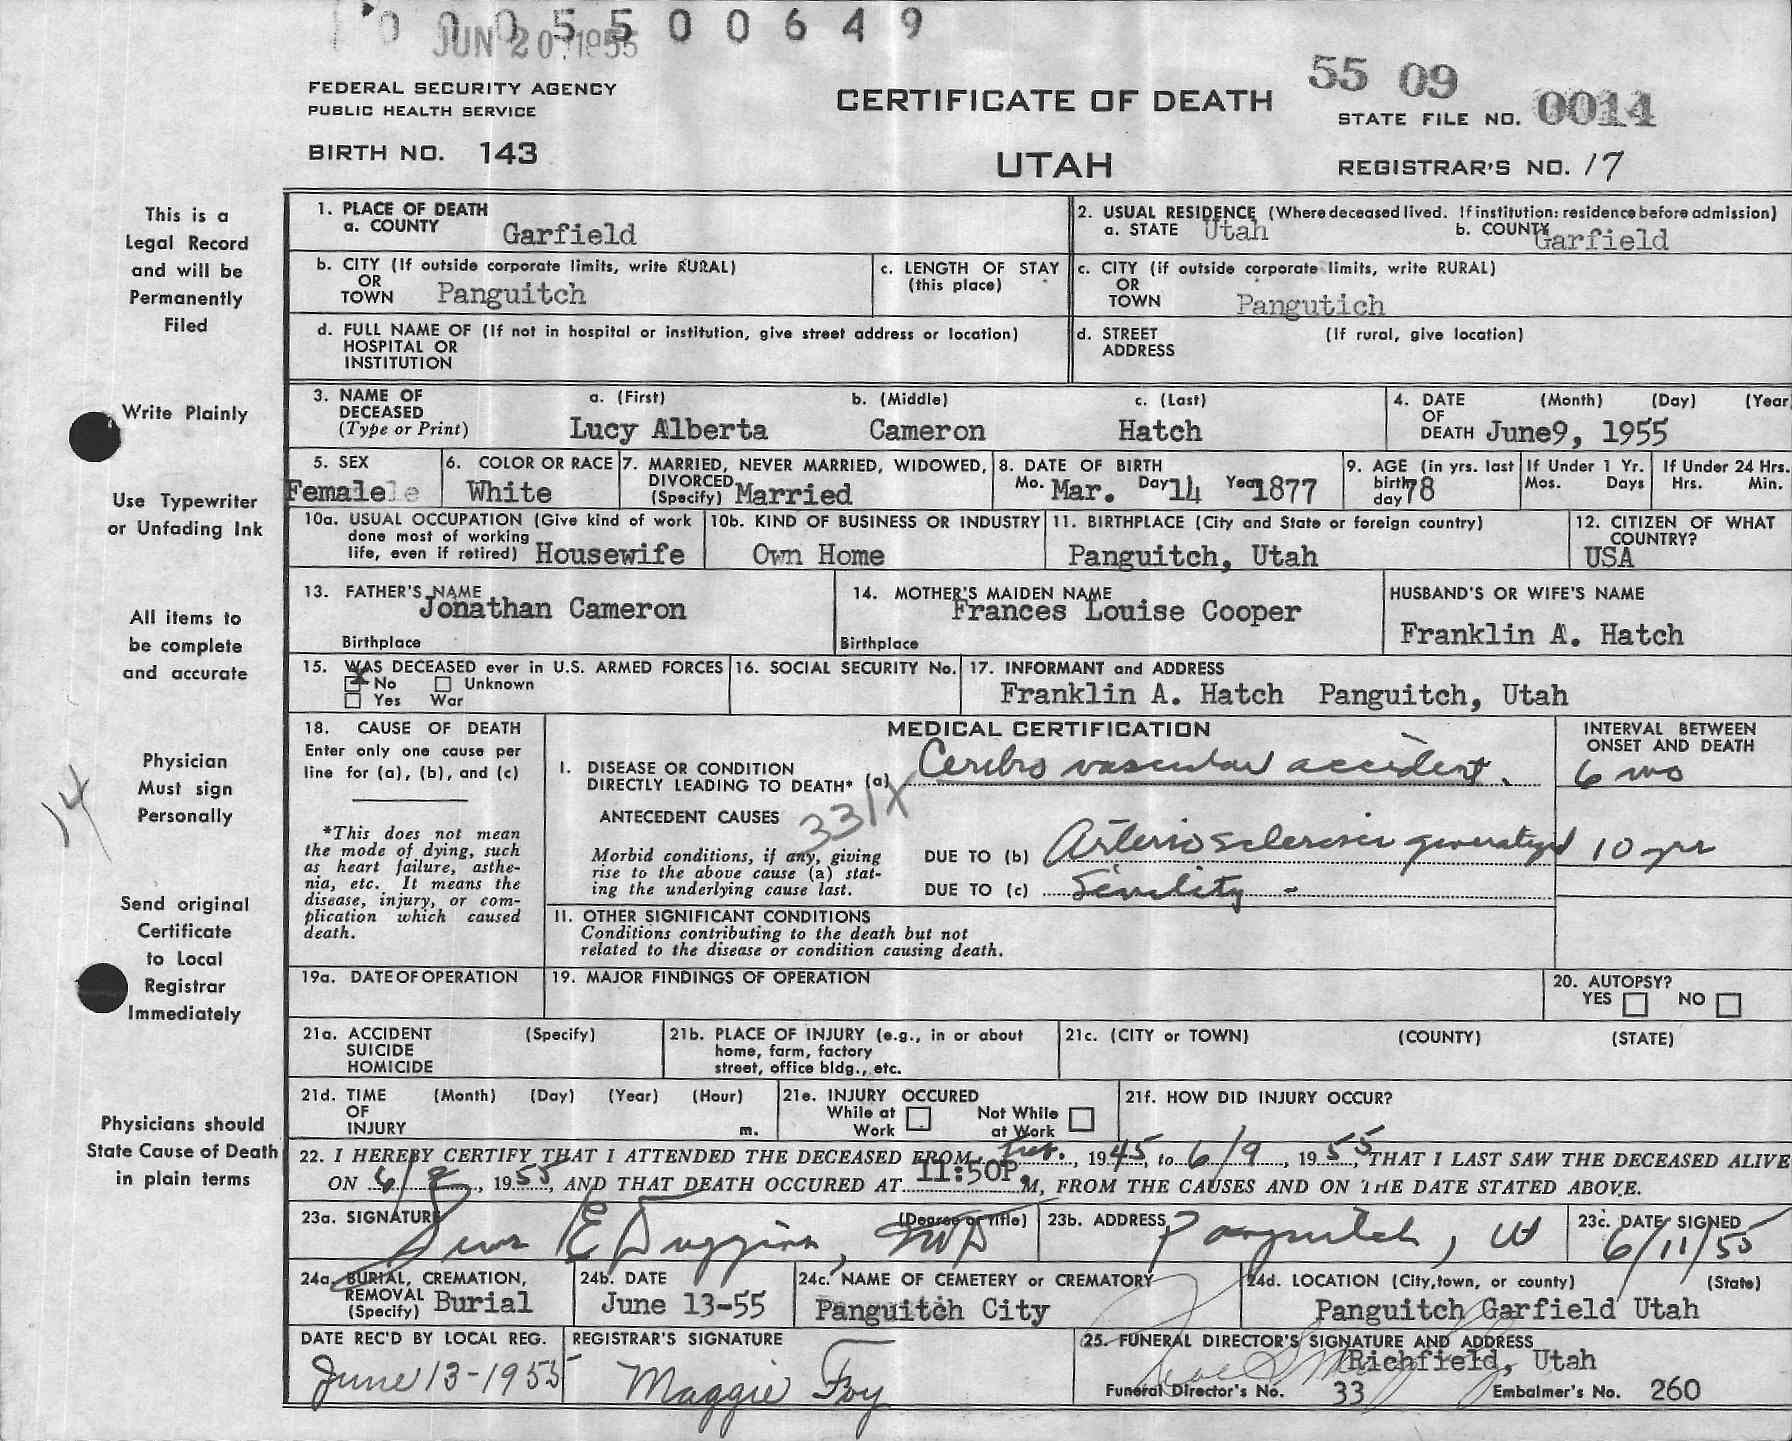 0005500649
JUN 20 1955
FEDERAL SECURITY AGENCY
PUBLIC HEALTH SERVICE
BIRTH NO. 143
CERTIFICATE OF DEATH
UTAH
55 09
STATE FILE NO. 0014
REGISTRAR'S NO. 17
This is a
Legal Record
and will be
Permanently
Filed
Write Plainly
Use Typewriter
or Unfading Ink
All items to
be complete
and accurate
Physician
Must sign
Personally
14
Send original
Certificate
to Local
Registrar
Immediately
Physicians should
State Cause of Death
in plain terms
1. PLACE OF DEATH
a. COUNTY Garfield
2. USUAL RESIDENCE (Where deceased lived. If institution: residence before admission)
a. STATE Utah b. COUNTY Garfield
b. CITY (If outside corporate limits, write RURAL)
OR
TOWN Panguitch
c. LENGTH OF STAY
(this place)
c. CITY (if outside corporate limits, write RURAL)
OR
TOWN Pangutich
d. FULL NAME OF (If not in hospital or institution, give street address or location)
HOSPITAL OR
INSTITUTION
d. STREET (If rural, give location)
ADDRESS
3. NAME OF DECEASED
(Type or Print)
a. (First) b. (Middle) c. (Last)
Lucy Alberta Cameron Hatch
4. DATE (Month) (Day) (Year
OF
DEATH June9, 1955
5. SEX
Femalele
6. COLOR OR RACE
White
7. MARRIED, NEVER MARRIED, WIDOWED,
DIVORCED
(Specify) Married
8. DATE OF BIRTH
Mo. Mar. Day 14 Year 1877
9. AGE (in yrs. last
birth
day 78
If Under 1 Yr.
Mos. Days
If Under 24 Hrs.
Hrs. Min.
10a. USUAL OCCUPATION (Give kind of work
done most of working
life, even if retired) Housewife
10b. KIND OF BUSINESS OR INDUSTRY
Own Home
11. BIRTHPLACE (City and State or foreign country)
Panguitch, Utah
12. CITIZEN OF WHAT
COUNTRY?
USA
13. FATHER'S NAME
Jonathan Cameron
Birthplace
14. MOTHER'S MAIDEN NAME
Frances Louise Cooper
Birthplace
HUSBAND'S OR WIFE'S NAME
Franklin A. Hatch
15. WAS DECEASED ever in U.S. ARMED FORCES
X No Unknown
Yes War
16. SOCIAL SECURITY No.
17. INFORMANT and ADDRESS
Franklin A. Hatch Panguitch, Utah
18. CAUSE OF DEATH
Enter only one cause per
line for (a), (b), and (c)
*This does not mean
the mode of dying, such
as heart failure, asthe-
nia, etc. It means the
disease, injury, or com-
plication which caused
death.
MEDICAL CERTIFICATION
INTERVAL BETWEEN
ONSET AND DEATH
I. DISEASE OR CONDITION
DIRECTLY LEADING TO DEATH* (a) Cerebro vascular accident. 6 mo
ANTECEDENT CAUSES 331X
Morbid conditions, if any, giving
rise to the above cause (a) stat-
ing the underlying cause last.
DUE TO (b) Arteriosclerosis generalized 10 yr
DUE TO (c) Senility -
II. OTHER SIGNIFICANT CONDITIONS
Conditions contributing to the death but not
related to the disease or condition causing death.
19a. DATE OF OPERATION
19. MAJOR FINDINGS OF OPERATION
20. AUTOPSY?
YES NO
21a. ACCIDENT (Specify)
SUICIDE
HOMICIDE
21b. PLACE OF INJURY (e.g., in or about
home, farm, factory
street, office bldg., etc.
21c. (CITY or TOWN) (COUNTY) (STATE)
21d. TIME (Month) (Day) (Year) (Hour)
OF
INJURY m.
21e. INJURY OCCURED
While at Work Not While at Work
21f. HOW DID INJURY OCCUR?
22. I HEREBY CERTIFY THAT I ATTENDED THE DECEASED FROM , 1945, to 6/9, 1955, THAT I LAST SAW THE DECEASED ALIVE
ON 6/ , 1955, AND THAT DEATH OCCURED AT 11:50P. M, FROM THE CAUSES AND ON THE DATE STATED ABOVE.
23a. SIGNATURE (Degree or Title)
Sims E Duggins, MD
23b. ADDRESS
Panguitch, Ut
23c. DATE SIGNED
6/11/55
24a. BURIAL, CREMATION,
REMOVAL
(Specify) Burial
24b. DATE
June 13-55
24c. NAME OF CEMETERY or CREMATORY
Panguitch City
24d. LOCATION (City, town, or county) (State)
Panguitch Garfield Utah
DATE REC'D BY LOCAL REG.
June 13-1955
REGISTRAR'S SIGNATURE
Maggie Foy
25. FUNERAL DIRECTOR'S SIGNATURE AND ADDRESS
Richfield, Utah
Funeral Director's No. 33 Embalmer's No. 260